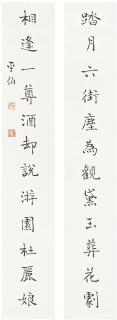 踏月六街塵為觀黛玉葬花劇
相逢一尊酒却說游園杜麗娘
平伯